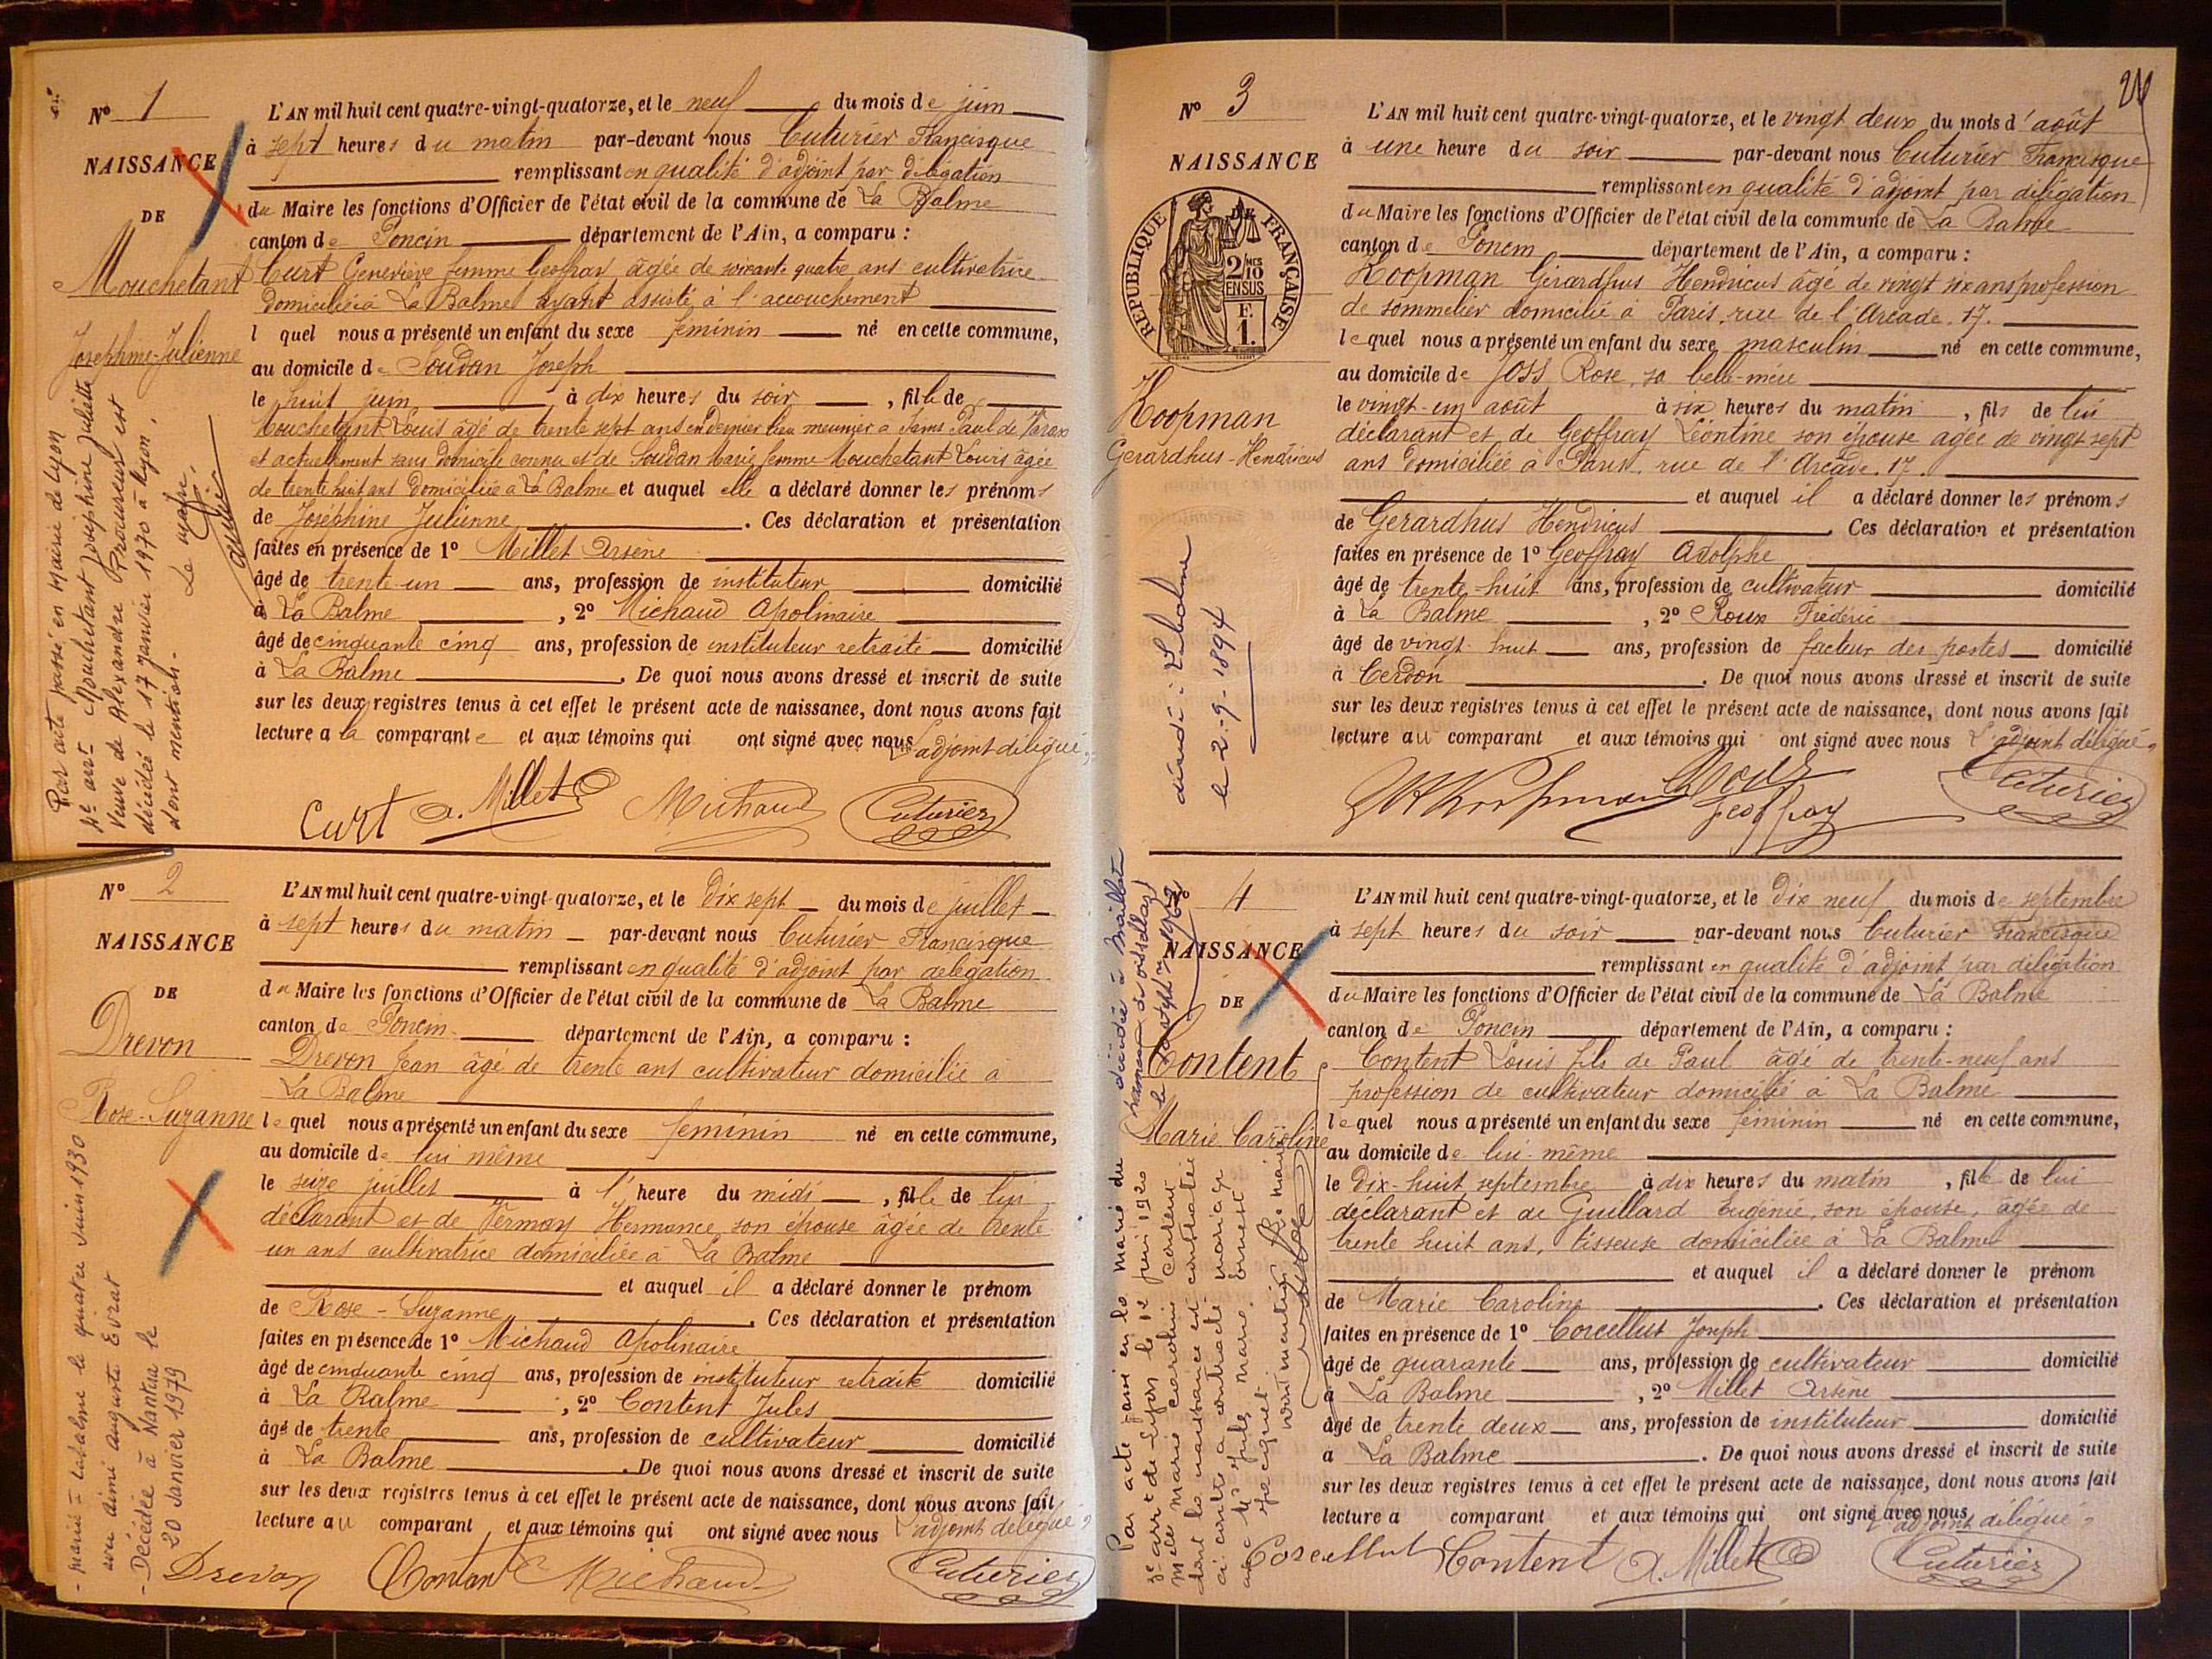 Nº 1
NAISSANCE
DE
Mouchetant
Joséphine-Julienne
L'AN mil huit cent quatre-vingt-quatorze, et le neuf du mois de juin
à sept heures du matin par-devant nous Cuturier Francisque
remplissant en qualité d'adjoint par délégation
du Maire les fonctions d'Officier de l'état civil de la commune de La Balme
canton de Poncin département de l'Ain, a comparu :
Curt Geneviève femme Geoffray âgée de soixante quatre ans cultivatrice
domiciliée à La Balme ayant assisté à l'accouchement
l quel nous a présenté un enfant du sexe féminin né en cette commune,
au domicile de Soudan Joseph
le huit juin à dix heures du soir , fille de
Mouchetant Louis âgé de trente sept ans en dernier lieu meunier à Saint Paul de Varax
et actuellement sans domicile connu et de Soudan Marie femme Mouchetant Louis âgée
de trente huit ans domiciliée à La Balme et auquel elle a déclaré donner les prénoms
de Joséphine Julienne . Ces déclaration et présentation
faites en présence de 1º Millet Arsène
âgé de trente-un ans, profession de instituteur domicilié
à La Balme , 2º Michaud Apolinaire
âgé de cinquante cinq ans, profession de instituteur retraité domicilié
à La Balme . De quoi nous avons dressé et inscrit de suite
sur les deux registres tenus à cet effet le présent acte de naissance, dont nous avons fait
lecture a la comparante et aux témoins qui ont signé avec nous L'adjoint délégué
Curt A. Millet Michaud Cuturier
Par acte passé en Mairie de Lyon
4e arrt Mouchetant Joséphine Juliette
Veuve de Alexandre Procureur est
décédée le 17 Janvier 1970 à Lyon.
dont mention.
Le maire.
Nº 2
NAISSANCE
DE
Drevon
Rose-Suzanne
L'AN mil huit cent quatre-vingt-quatorze, et le dix sept du mois de juillet
à sept heures du matin par-devant nous Cuturier Francisque
remplissant en qualité d'adjoint par délégation
du Maire les fonctions d'Officier de l'état civil de la commune de La Balme
canton de Poncin département de l'Ain, a comparu :
Drevon Jean âgé de trente ans cultivateur domicilié à
La Balme
lequel nous a présenté un enfant du sexe féminin né en cette commune,
au domicile de lui même
le seize juillet à l' heure du midi , fille de lui
déclarant et de Vermay Hermance, son épouse âgée de trente
un ans cultivatrice domiciliée à La Balme
et auquel il a déclaré donner le prénom
de Rose-Suzanne . Ces déclaration et présentation
faites en présence de 1º Michaud Apolinaire
âgé de cinquante cinq ans, profession de instituteur retraité domicilié
à La Balme , 2º Content Jules
âgé de trente ans, profession de cultivateur domicilié
à La Balme . De quoi nous avons dressé et inscrit de suite
sur les deux registres tenus à cet effet le présent acte de naissance, dont nous avons fait
lecture au comparant et aux témoins qui ont signé avec nous L'adjoint délégué
Drevon Contan Michaud Cuturier
- marié à Labalme le quatre Juin 1930
avec Aimé Auguste Evrat
- Décédée à Nantua le
20 Janvier 1979
26
Nº 3
NAISSANCE
DE
REPUBLIQUE FRANÇAISE
2/10 MES
EN SUS
F.
1.
Koopman
Gerardhus-Hendricus
L'AN mil huit cent quatre-vingt-quatorze, et le vingt deux du mois d'août
à une heure du soir par-devant nous Cuturier Francisque
remplissant en qualité d'adjoint par délégation
du Maire les fonctions d'Officier de l'état civil de la commune de La Balme
canton de Poncin département de l'Ain, a comparu :
Koopman Gerardhus Hendricus âgé de vingt six ans profession
de sommelier domicilié à Paris, rue de l'Arcade. 17.
lequel nous a présenté un enfant du sexe masculin né en cette commune,
au domicile de Joss Rose, sa belle-mère
le vingt-un août à six heures du matin , fils de lui
déclarant et de Geoffray Léontine son épouse âgée de vingt sept
ans domiciliée à Paris. rue de l'Arcade. 17.
et auquel il a déclaré donner les prénoms
de Gerardhus Hendricus . Ces déclaration et présentation
faites en présence de 1º Geoffray Adolphe
âgé de trente-huit ans, profession de cultivateur domicilié
à La Balme , 2º Roux Frédéric
âgé de vingt-huit ans, profession de facteur des postes domicilié
à Cerdon . De quoi nous avons dressé et inscrit de suite
sur les deux registres tenus à cet effet le présent acte de naissance, dont nous avons fait
lecture au comparant et aux témoins qui ont signé avec nous L'adjoint délégué
Koopman Roux Geoffray Cuturier
décédé : Labalme
le 2-9-1894
4
NAISSANCE
DE
Content
Marie Caroline
L'AN mil huit cent quatre-vingt-quatorze, et le dix neuf du mois de septembre
à sept heures du soir par-devant nous Cuturier Francisque
remplissant en qualité d'adjoint par délégation
du Maire les fonctions d'Officier de l'état civil de la commune de La Balme
canton de Poncin département de l'Ain, a comparu :
Content Louis fils de Paul âgé de trente-neuf ans
profession de cultivateur domicilié à La Balme
lequel nous a présenté un enfant du sexe féminin né en cette commune,
au domicile de lui-même
le dix-huit septembre à dix heures du matin , fille de lui
déclarant et de Guillard Eugénie, son épouse, âgée de
trente huit ans, tisseuse domiciliée à La Balme
et auquel il a déclaré donner le prénom
de Marie Caroline . Ces déclaration et présentation
faites en présence de 1º Corcellut Joseph
âgé de quarante ans, profession de cultivateur domicilié
à La Balme , 2º Millet Arsène
âgé de trente deux ans, profession de instituteur domicilié
à La Balme . De quoi nous avons dressé et inscrit de suite
sur les deux registres tenus à cet effet le présent acte de naissance, dont nous avons fait
lecture a comparant et aux témoins qui ont signé avec nous L'adjoint délégué
Corcellut Content A. Millet Cuturier
Par acte passé en la mairie du
3e arrt de Lyon le 12 juin 1920
Melle Marie Caroline Content
dont la naissance est constatée
ci contre a contracté mariage
avec Mr Jules Marie Ernest
Jacquet.
dont mention
décédée à Maillat